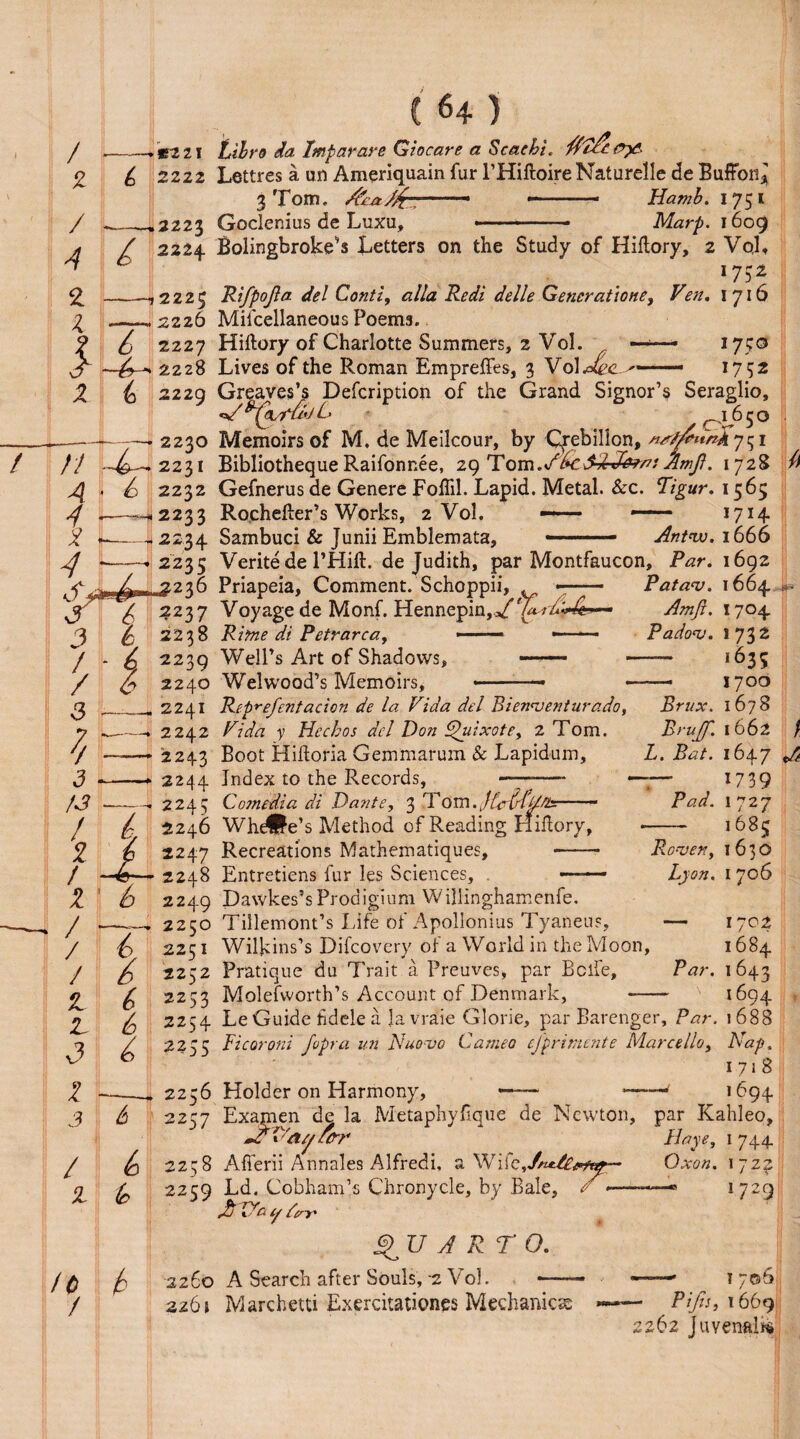 ( 64 )
/ 2221 Libro da Imparare Giocare a Scachi.
2 6 2222 Lettres à un Ameriquain sur l'Histoire Naturelle de Buffon,
3 Tom. —— Hamb. 1751
/ 2223 Goclenius de Luxu, —— Marp. 1609
4 6 2224 Bolingbroke's Letters on the Study of History, 2 Vol.
1752
2 2225 Risposta del Conti, alla Redi delle Generatione, Ven. 1716
2226 Miscellaneous Poems.
6 2227 History of Charlotte Summers, 2 Vol. —— 1750
6 2228 Lives of the Roman Empresses, 3 Vol —— 1752
2 6 2229 Greaves's Description of the Grand Signor's Seraglio,
1650
2230 Memoirs of M. de Meilcour, by Crebillon, 751
11 6 2231 Bibliotheque Raisonnée, 29 Tom. Amst. 1728
4 6 2232 Gesnerus de Genere Fossil. Lapid. Metal. &c. Tigur. 1565
4 2233 Rochester's Works, 2 Vol. —— —— 1714
2 2234 Sambuci & Junii Emblemata, —— Antw. 1666
4 2235 Verité de l'Hist. de Judith, par Montfaucon, Par. 1692
2236 Priapeia, Comment. Schoppii, —— Patav. 1664
6 2237 Voyage de Mons. Hennepin, Amst. 1704
3 6 2238 Rime di Petrarca, —— —— Padov. 1732
/ 6 2239 Well's Art of Shadows, —— —— 1635
/ 6 2240 Welwood's Memoirs, —— —— 1700
3 2241 Representacion de la Vida del Bienventurado, Brux. 1678
7 2242 Vida y Hechos del Don Quixote, 2 Tom. Bruss. 1662
2243 Boot Historia Gemmarum & Lapidum, L. Bat. 1647
3 2244 Index to the Records, —— —— 1739
13 2245 Comedia di Dante, 3 Tom. —— Pad. 1727
/ 6 2246 Wheare's Method of Reading History, —— 1685
2 6 2247 Recreations Mathematiques, —— Roven, 1630
/ 2248 Entretiens sur les Sciences, —— Lyon. 1706
2 6 2249 Dawkes's Prodigium Willinghamense.
/ 2250 Tillemont's Life of Apollonius Tyaneus, — 1702
/ 6 2251 Wilkins's Discovery of a World in the Moon, 1684
/ 6 2252 Pratique du Trait à Preuves, par Bosse, Par. 1643
2 6 2253 Molesworth's Account of Denmark, —— 1694
2 6 2254 Le Guide fidele à la vraie Glorie, par Barenger, Par. 1688
3 6 2255 Ficoroni sopra un Nuovo Cameo esprimente Marcello, Nap.
1718
2 2256 Holder on Harmony, —— —— 1694
3 6 2257 Examen de la Metaphysique de Newton, par Kahleo,
Haye, 1744
/ 6 2258 Asserii Annales Alfredi, a Wise, Oxon. 1722
2 6 2259 Ld. Cobham's Chronycle, by Bale, —— 1729
QUARTO.
10 6 2260 A Search after Souls, 2 Vol. —— —— 1706
/ 2261 Marchetti Exercitationes Mechanicæ —— Pisis, 1669
2262 Juvenalis